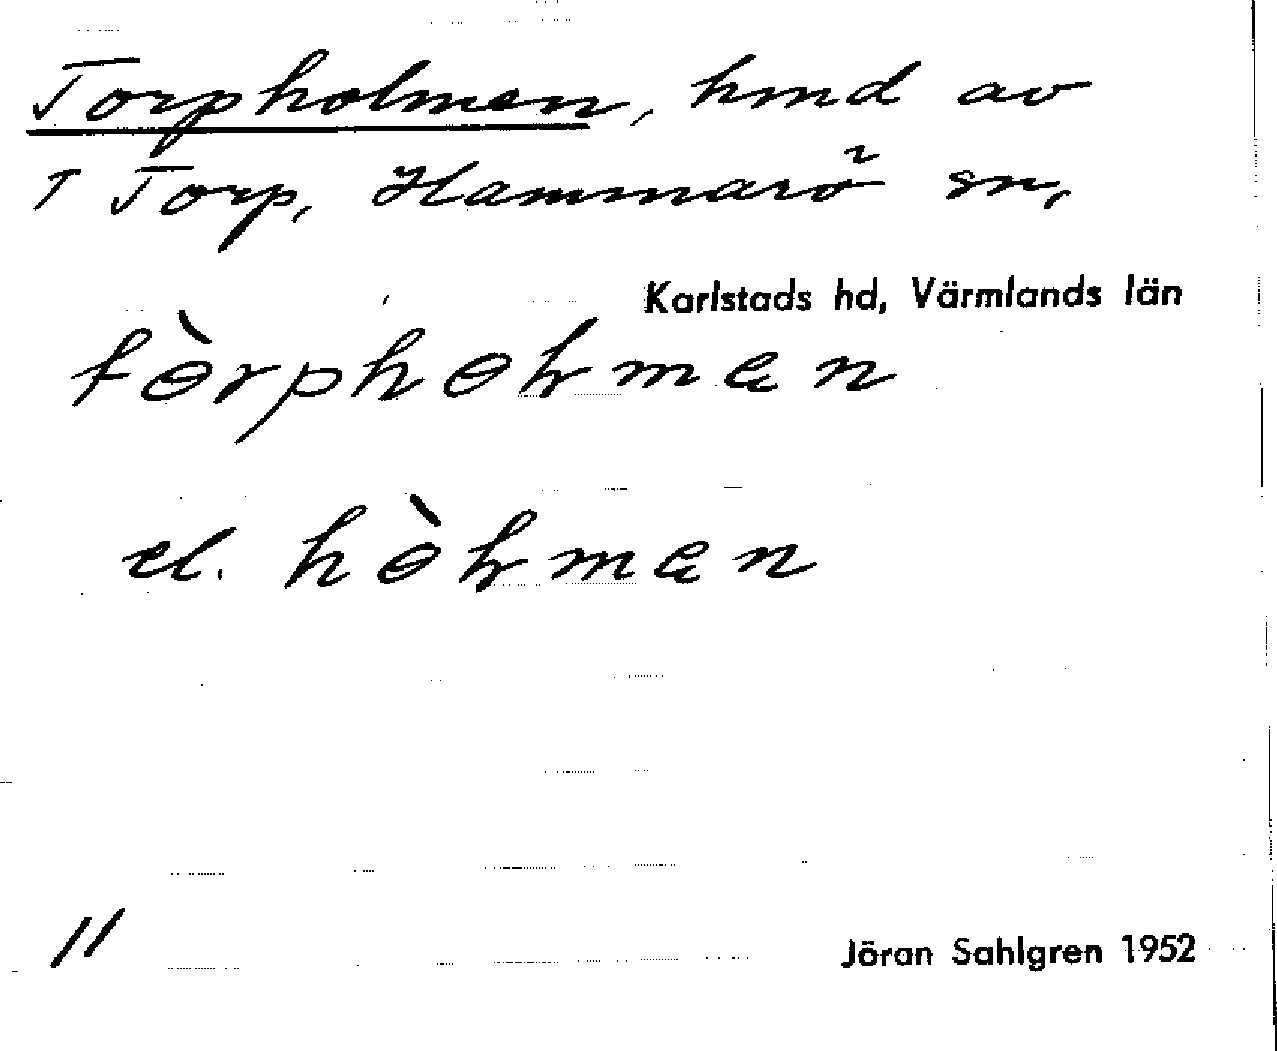 Torpholmen, hmd av
1 Torp, Hammarö sn,
Karlstads hd, Värmlands län
tɵ̀rphɵɫmąn
el. hɵ̀ɫmąn
11
Jöran Sahlgren 1952